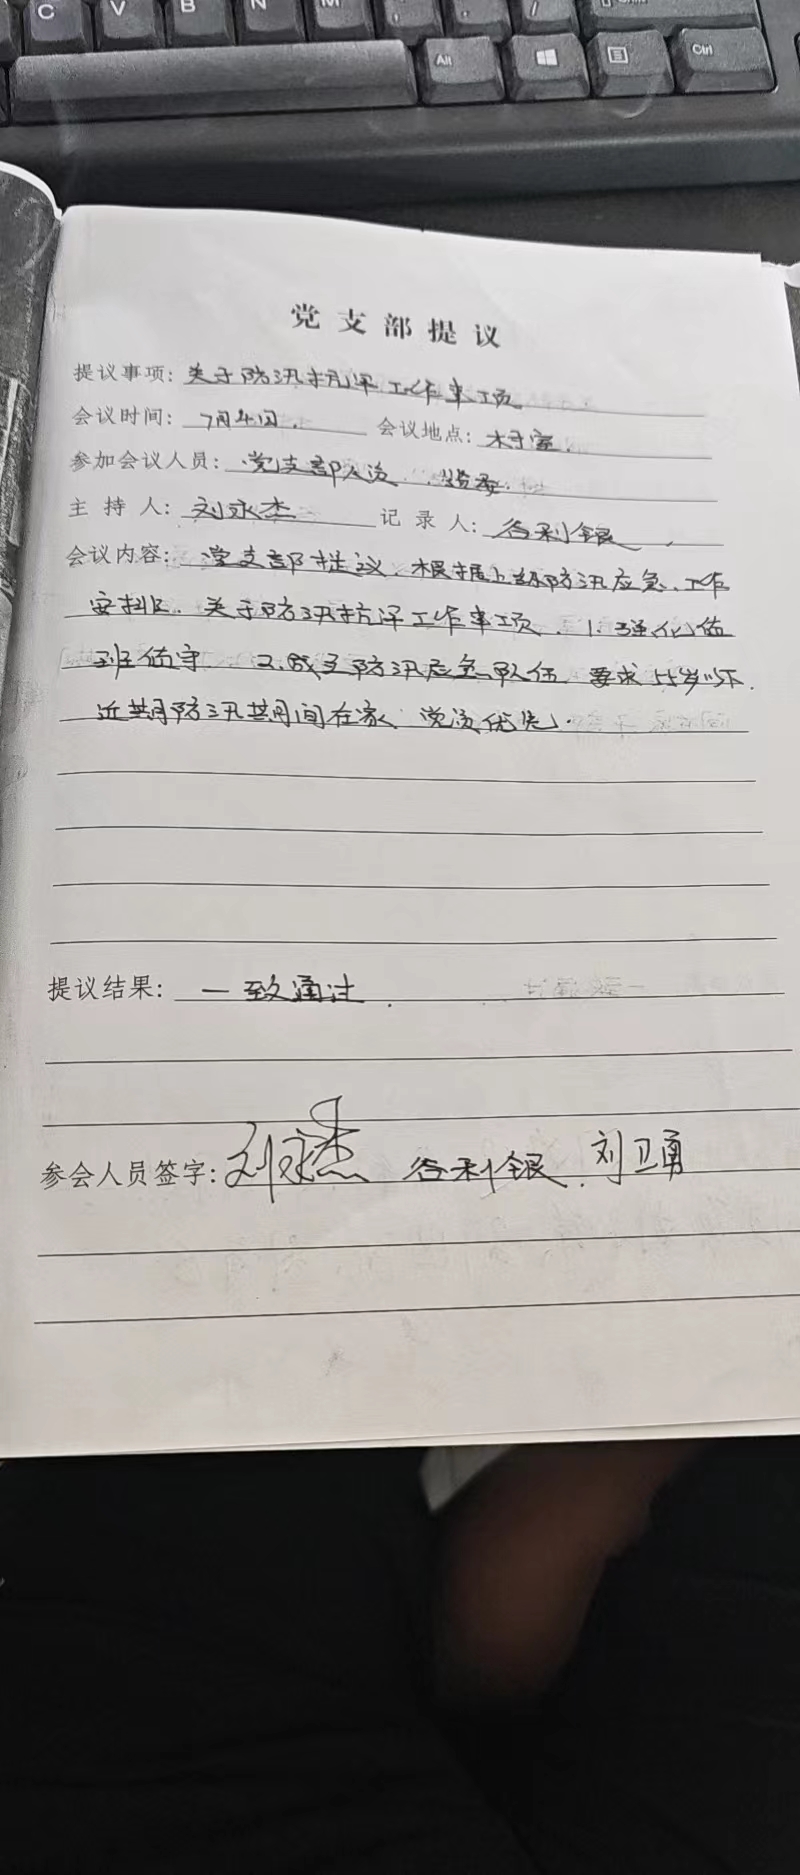 C V B N M
Alt Ctrl
党支部提议
提议事项: 关于防汛抗洋工作事项
会议时间: 7月4日. 会议地点: 村室.
参加会议人员: 党支部人员
主持人: 刘永杰 记录人: 谷利银
会议内容: 党支部提议、根据上级防汛应急工作
安排. 关于防汛抗洋工作事项. 1.强化值
班值守 2.成立防汛应急队伍 要求55岁以下.
近期防汛期间在家、党员优先.
提议结果: 一致通过.
参会人员签字: 刘永杰 谷利银. 刘卫勇